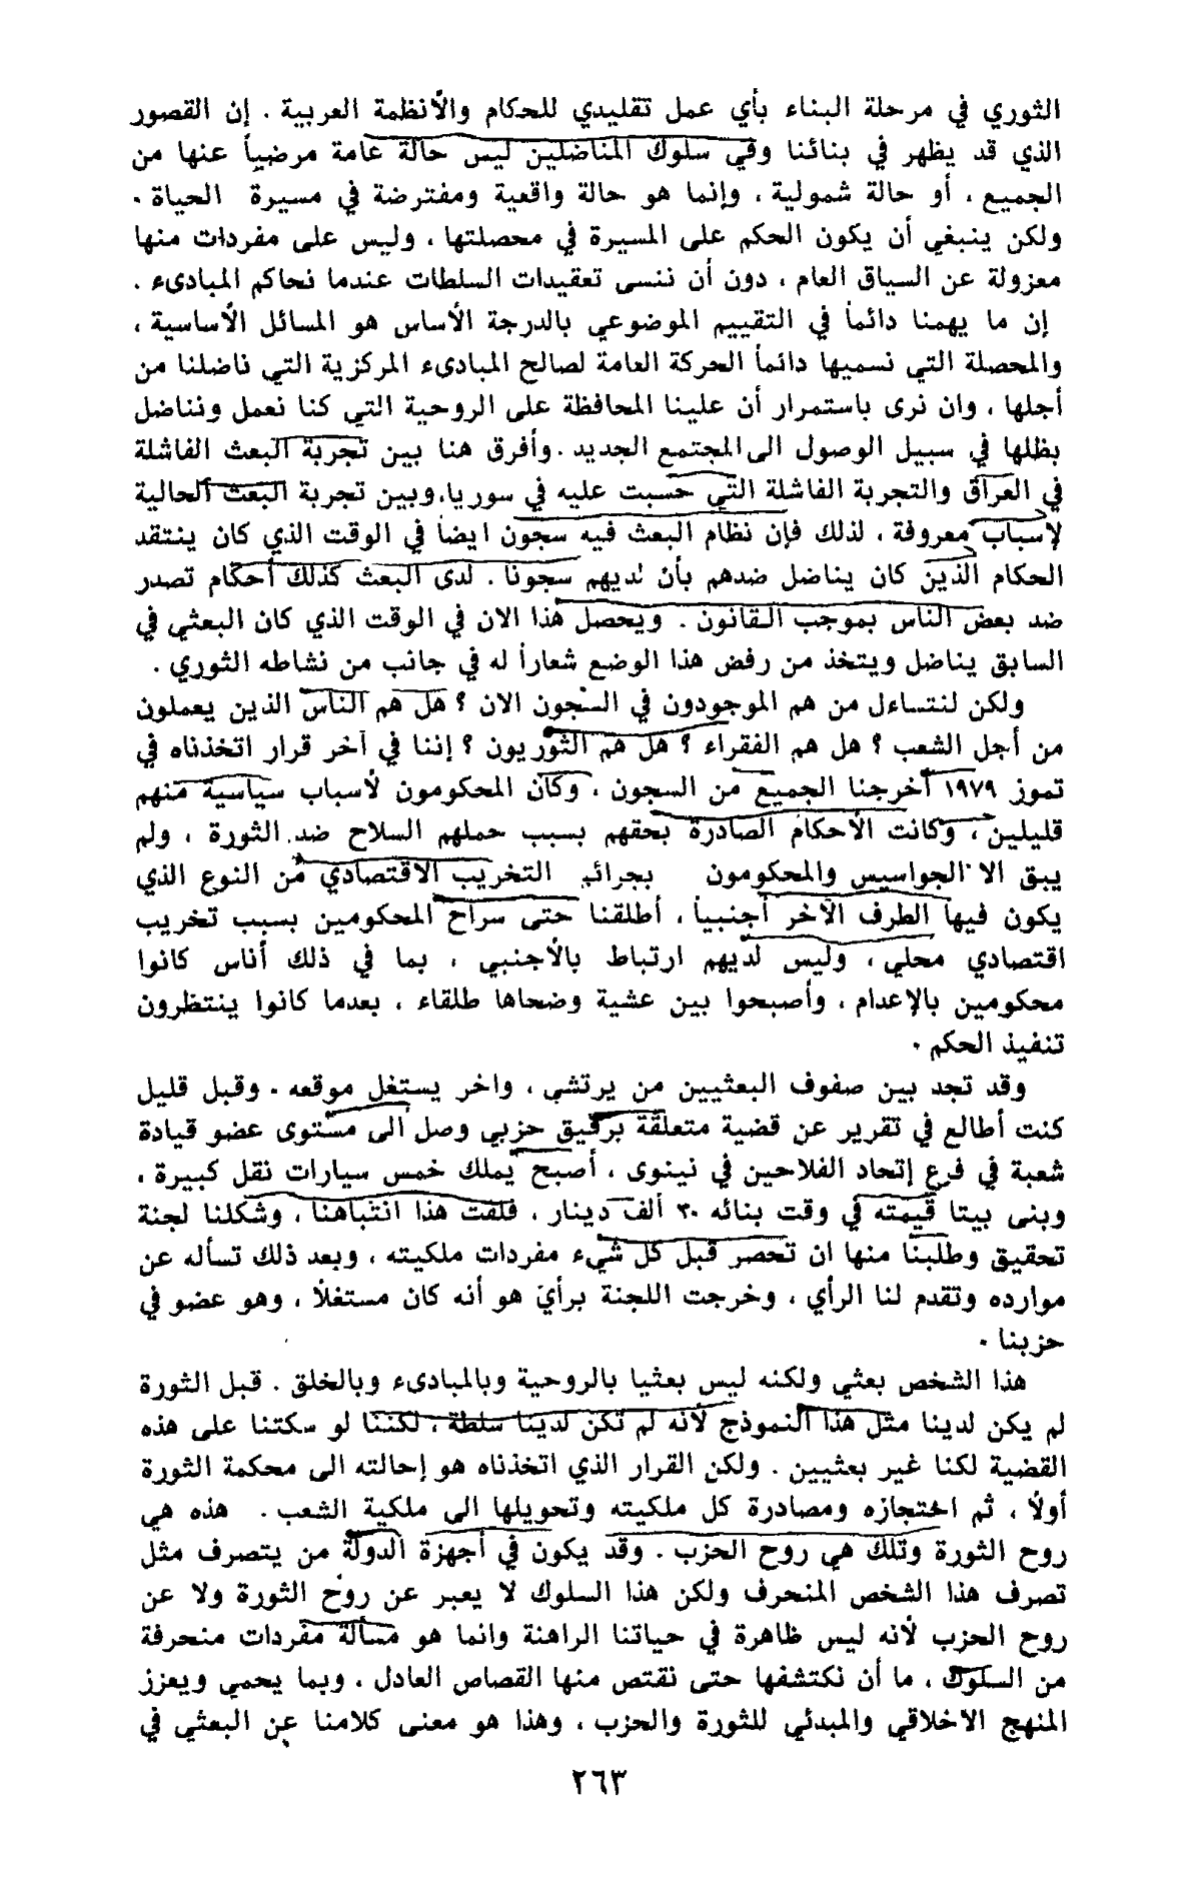 الثوري في مرحلة البناء بأي عمل تقليدي للحكام والأنظمة العربية . إن القصور
الذي قد يظهر في بنائنا وفي سلوك المناضلين ليس حالة عامة مرضياً عنها من
الجميع ، أو حالة شمولية ، وإنما هو حالة واقعية ومفترضة في مسيرة الحياة .
ولكن ينبغي أن يكون الحكم على المسيرة في محصلتها ، وليس على مفردات منها
معزولة عن السياق العام ، دون أن ننسى تعقيدات السلطات عندما نحاكم المبادىء .
إن ما يهمنا دائماً في التقييم الموضوعي بالدرجة الأساس هو المسائل الأساسية ،
والمحصلة التي نسميها دائماً الحركة العامة لصالح المبادىء المركزية التي ناضلنا من
أجلها ، وان نرى باستمرار أن علينا المحافظة على الروحية التي كنا نعمل ونناضل
بظلها في سبيل الوصول الى المجتمع الجديد . وأفرق هنا بين تجربة البعث الفاشلة
في العراق والتجربة الفاشلة التي حسبت عليه في سوريا، وبين تجربة البعث الحالية
لأسباب معروفة ، لذلك فإن نظام البعث فيه سجون ايضاً في الوقت الذي كان ينتقد
الحكام الذين كان يناضل ضدهم بأن لديهم سجونا . لدى البعث كذلك أحكام تصدر
ضد بعض الناس بموجب القانون . ويحصل هذا الان في الوقت الذي كان البعثي في
السابق يناضل ويتخذ من رفض هذا الوضع شعاراً له في جانب من نشاطه الثوري .
ولكن لنتساءل من هم الموجودون في السجون الان ؟ هل هم الناس الذين يعملون
من أجل الشعب ؟ هل هم الفقراء ؟ هل هم الثوريون ؟ إننا في آخر قرار اتخذناه في
تموز ١٩٧٩ أخرجنا الجميع من السجون ، وكان المحكومون لأسباب سياسية منهم
قليلين ، وكانت الأحكام الصادرة بحقهم بسبب حملهم السلاح ضد الثورة ، ولم
يبق الا الجواسيس والمحكومون بجرائم التخريب الاقتصادي من النوع الذي
يكون فيها الطرف الآخر أجنبياً ، أطلقنا حتى سراح المحكومين بسبب تخريب
اقتصادي محلي ، وليس لديهم ارتباط بالأجنبي ، بما في ذلك أناس كانوا
محكومين بالإعدام ، وأصبحوا بين عشية وضحاها طلقاء ، بعدما كانوا ينتظرون
تنفيذ الحكم .
وقد تجد بين صفوف البعثيين من يرتشي ، واخر يستغل موقعه . وقبل قليل
كنت أطالع في تقرير عن قضية متعلقة برفيق حزبي وصل الى مستوى عضو قيادة
شعبة في فرع إتحاد الفلاحين في نينوى ، أصبح يملك خمس سيارات نقل كبيرة ،
وبنى بيتا قيمته في وقت بنائه ٣٠ ألف دينار ، فلفت هذا انتباهنا ، وشكلنا لجنة
تحقيق وطلبنا منها ان تحصر قبل كل شيء مفردات ملكيته ، وبعد ذلك تسأله عن
موارده وتقدم لنا الرأي ، وخرجت اللجنة برأي هو أنه كان مستغلاً ، وهو عضو في
حزبنا .
هذا الشخص بعثي ولكنه ليس بعثيا بالروحية وبالمبادىء وبالخلق . قبل الثورة
لم يكن لدينا مثل هذا النموذج لأنه لم تكن لدينا سلطة ، لكننا لو سكتنا على هذه
القضية لكنا غير بعثيين . ولكن القرار الذي اتخذناه هو إحالته الى محكمة الثورة
أولاً ، ثم احتجازه ومصادرة كل ملكيته وتحويلها الى ملكية الشعب . هذه هي
روح الثورة وتلك هي روح الحزب . وقد يكون في أجهزة الدولة من يتصرف مثل
تصرف هذا الشخص المنحرف ولكن هذا السلوك لا يعبر عن روح الثورة ولا عن
روح الحزب لأنه ليس ظاهرة في حياتنا الراهنة وانما هو مسألة مفردات منحرفة
من السلوك ، ما أن نكتشفها حتى نقتص منها القصاص العادل ، وبما يحمي ويعزز
المنهج الاخلاقي والمبدئي للثورة والحزب ، وهذا هو معنى كلامنا عن البعثي في
٢٦٣